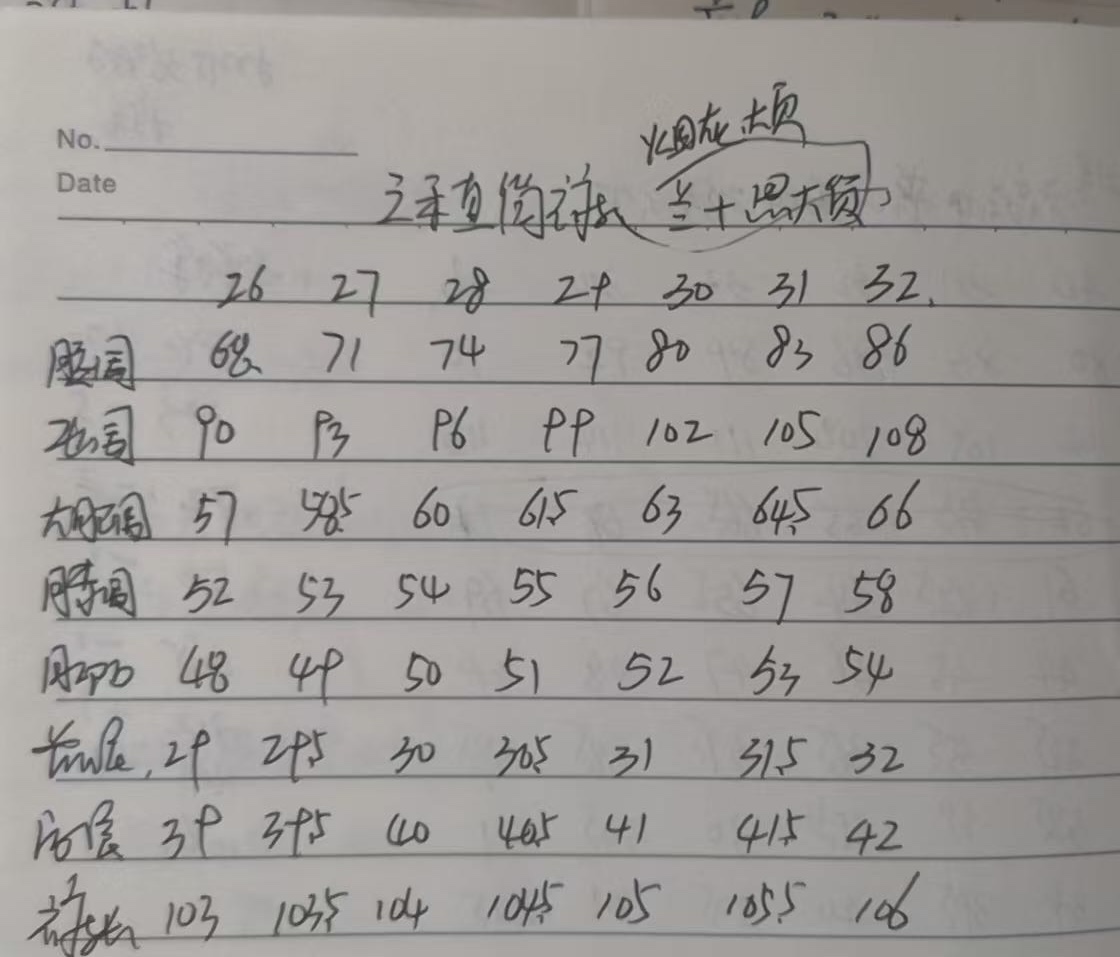 No.
Date
烟灰 大页
立采直筒裤 兰十黑大页
26 27 28 29 30 31 32.
腰围 68 71 74 77 80 83 86
臀围 90 93 96 99 102 105 108
大腿围 57 58.5 60 61.5 63 64.5 66
膝围 52 53 54 55 56 57 58
脚口 48 49 50 51 52 53 54
前浪 29 29.5 30 30.5 31 31.5 32
后浪 39 39.5 40 40.5 41 41.5 42
裤长 103 103.5 104 104.5 105 105.5 106